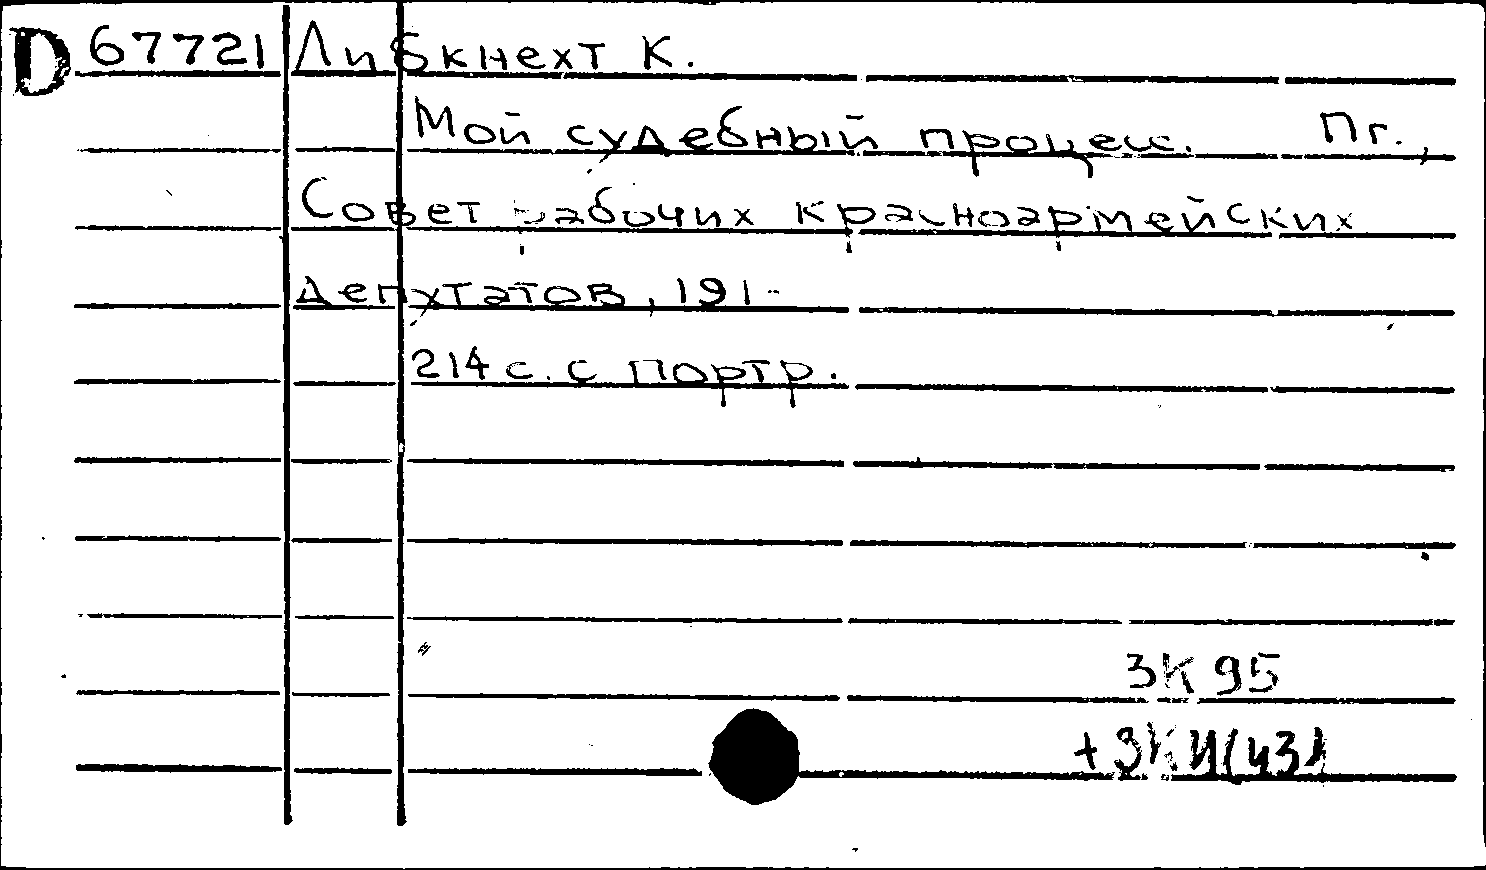 D 67721 Либкнехт К.
Мой судебный процесс. Пг.,
Совет рабочих красноармейских
депутатов, 191-
214 с. с портр.
3К 95